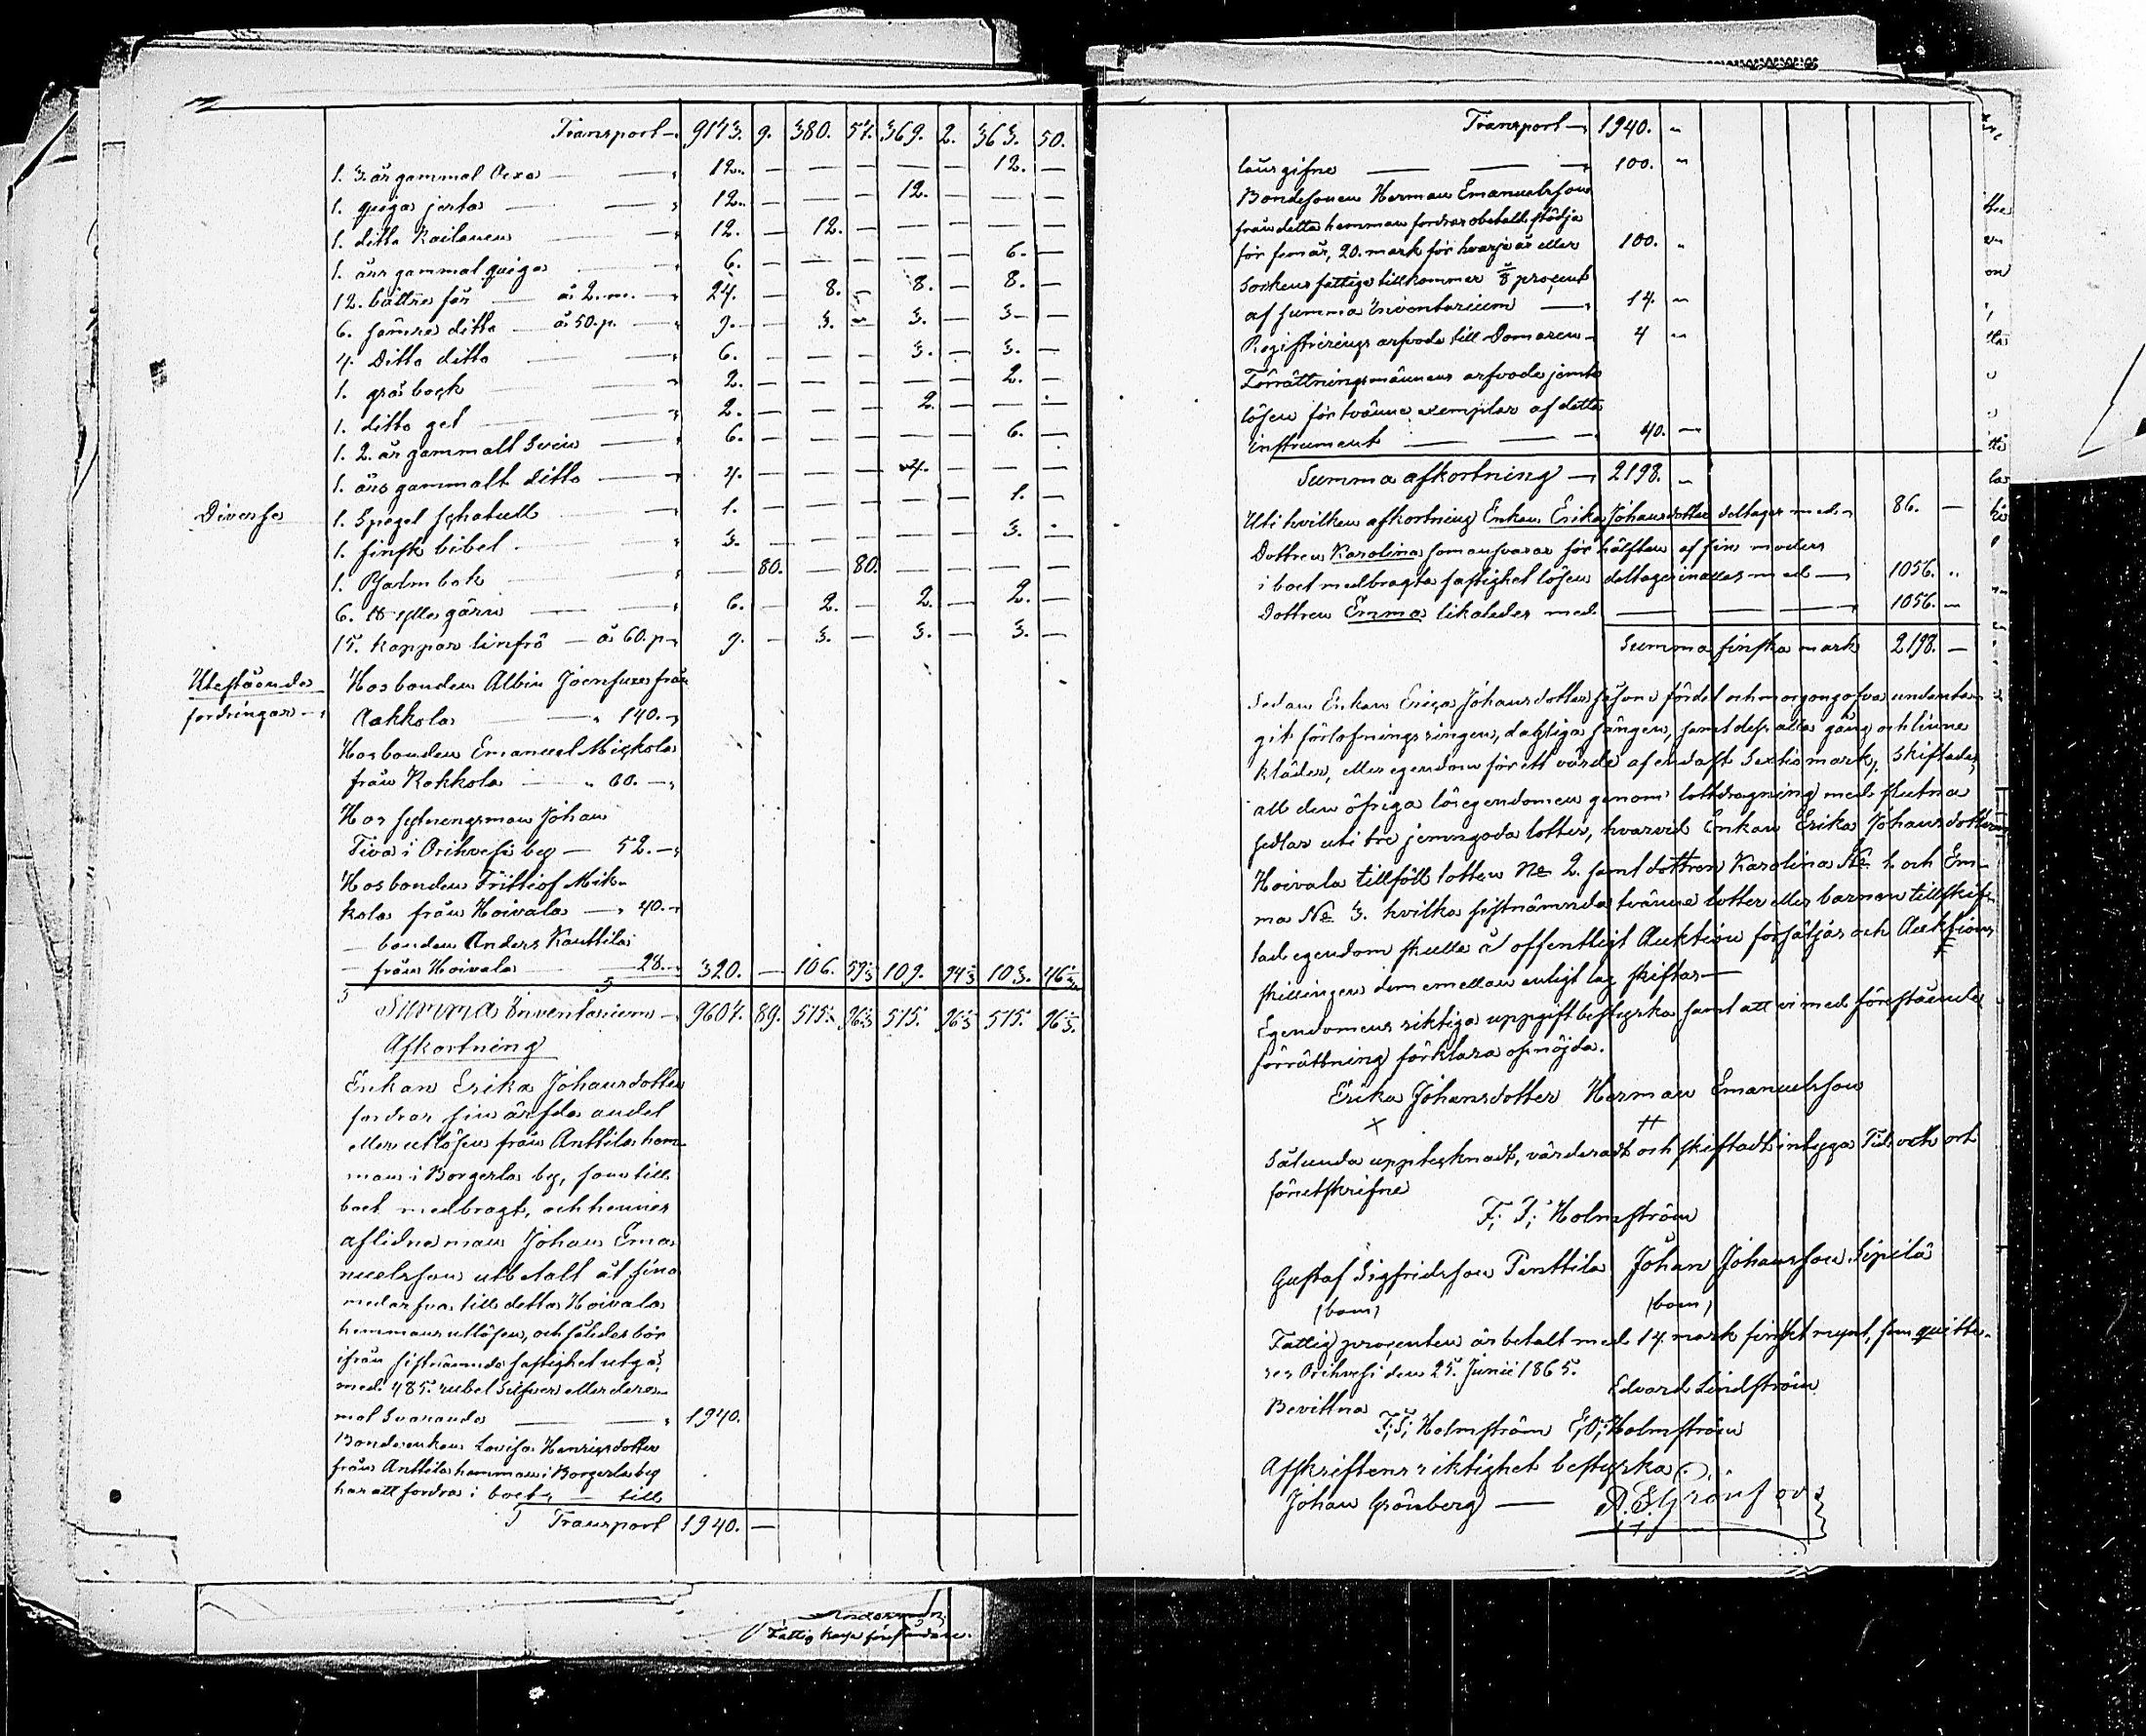 Transport 9173. 9. 380. 57. 369. 2. 363. 50.
1. 3. år gammal Oxa 12. — — — — — 12. —
1. quiga jerta 12. — — — 12. — — —
1. ditto Kailanen 12. — 12. — — — — —
1. års gammal quiga 6. — — — — — 6. —
12. bättre får — á 2. m. — 24. — 8. — 8. — 8. —
6. sämre ditto — á 50. p. — 9. — 3. — 3. — 3 —
4. Ditto ditto 6. — — — 3. — 3. —
1. grå bock 2. — — — — — 2. —
1. ditto get 2. — — — 2. — — —
1. 2. år gammalt Svin 6. — — — — — 6. —
1. års gammalt ditto 4. — — — 4. — — —
Diverse
1. Spegel schatull 1. — — — — — 1. —
1. finsk bibel 3. — — — — — 3. —
1. Psalmbok — 80. — 80. — — — —
6. ℔ ylle gärn 6. — 2. — 2. — 2. —
15. kappar linfrö — á 60. p. 9. — 3. — 3. — 3. —
Utestående
fordringar
Hos bonden Albin Joensuu från
Aakkola 140. —
Hos bonden Emanuel Mickola
från Kokkola 60. —
Hos sytningsman Johan
Tiva i Orihvesi by — 52. —
Hos bonden Frittiof Mik-
kola från Hoivala — 40. —
— bonden Anders Kauttila
— från Hoivala 28. — 320. — 106. 57⅓ 109. 94⅓ 103. 46⅓
Summa Inventarium 9607. 89. 575. 96⅓ 515. 96⅓ 515. 96⅓
Afkortning
Enkan Erika Johansdotter
fordrar sin ärfda andel
eller utlösen från Anttila hem-
man i Borgerla by, som till
boet medbragt, och hennes
aflidna man Johan Ema-
nuelsson utbetalt åt sina
medarfvar till detta Hoivala
hemmans utlösen, och således bör
ifrån sistnämnda fastighet utgå,
med 485. rubel Silfver eller dere-
mot Svarande 1940.
Bondeenkan Lovisa Henricsdotter
från Anttila hemman i Borgerla by
har att fordra i boet — till
Transport 1940. —
Transport 1940. "
lånsgifne 100. "
Bondesonen Herman Emanuelsson
från detta hemman fordrar obetald städja
för fem år, 20. mark för hvarje år eller 100. "
Sockens fattige tillkommer ⅛ procent
af summa Inventarium 14. "
Registrerings arfvode till Domaren 4 "
Förrättningsmännens arfvode jemte
lösen för tvänne exemplar af detta
Instrument 40. —
Summa afkortning — 2198. "
Uti hvilken afkortning Enkan Erika Johansdotter deltager med 86. —
Dottren Karolina som ansvarar för hälften af sin moders
i boet medbragta fastighet lösen deltager inalles med 1056. "
Dottren Emma likaledes med 1056. —
Summa finska mark 2198. —
Sedan Enkan Erica Johansdotter såsom fördel och morgongåfva undanta-
git förlofningsringen, dagliga sängen, samt dess alla gång och linne
kläder, eller egendom för ett värde af endast Sextio mark, skiftades
all den öfriga lösegendomen genom lottdragning med slutna
sedlar uti tre jemngoda lotter, hvarvid Enkan Erika Johansdotter
Hoivala tillföll lotten No 2. samt dottren Karolina No 1. och Em-
ma No 3. hvilka sistnämnda tvänne lotter eller barnen tillskif-
tad egendom skulle å offentligt Auktion försäljas och Auktions
skillingen dem emellan enligt lag skiftas —
Egendomens riktiga uppgift bestyrka samt att vi med förestående
förrättning förklara oss nöjda.
Erika Johansdotter Herman Emanuelsson
Sålunda upptecknadt, värderadt och skiftadt intyga Tid och ort
föreskrifne
F: I: Holmström
Gustaf Sigfridsson Penttila Johan Johansson Sipilä
(bom) (bom)
Fattig procenten är betalt med 14 mark finskt mynt, som quitte-
ras Orihvesi den 25. Junii 1865.
Edvard Lindström
Bevittna
F: I: Holmström E: O: Holmström
Afskriftens riktighet bestyrka
Johan Grönberg —
Fattig kassa föreståndare.